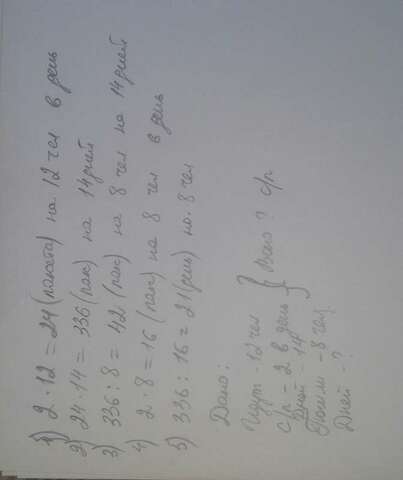 1) 2 · 12 = 24 (пакета) на 12 чел в день
2) 24 · 14 = 336 (пак) на 14 дней
3) 336 : 8 = 42 (пак) на 8 чел на 14 дней
4) 2 · 8 = 16 (пак) на 8 чел в день
5) 336 : 16 = 21 (день) на 8 чел
Дано:
Идут - 12 чел
с/п - 2 в день } Всего ? с/п
Дней - 14
Пошли - 8 чел
Дней - ?